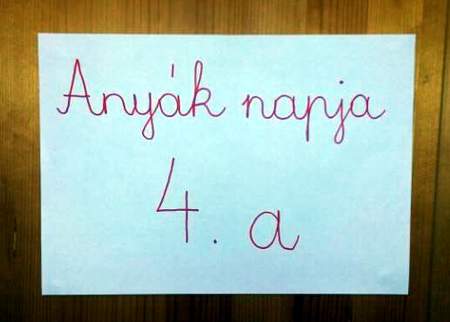 Anyák napja
4. a